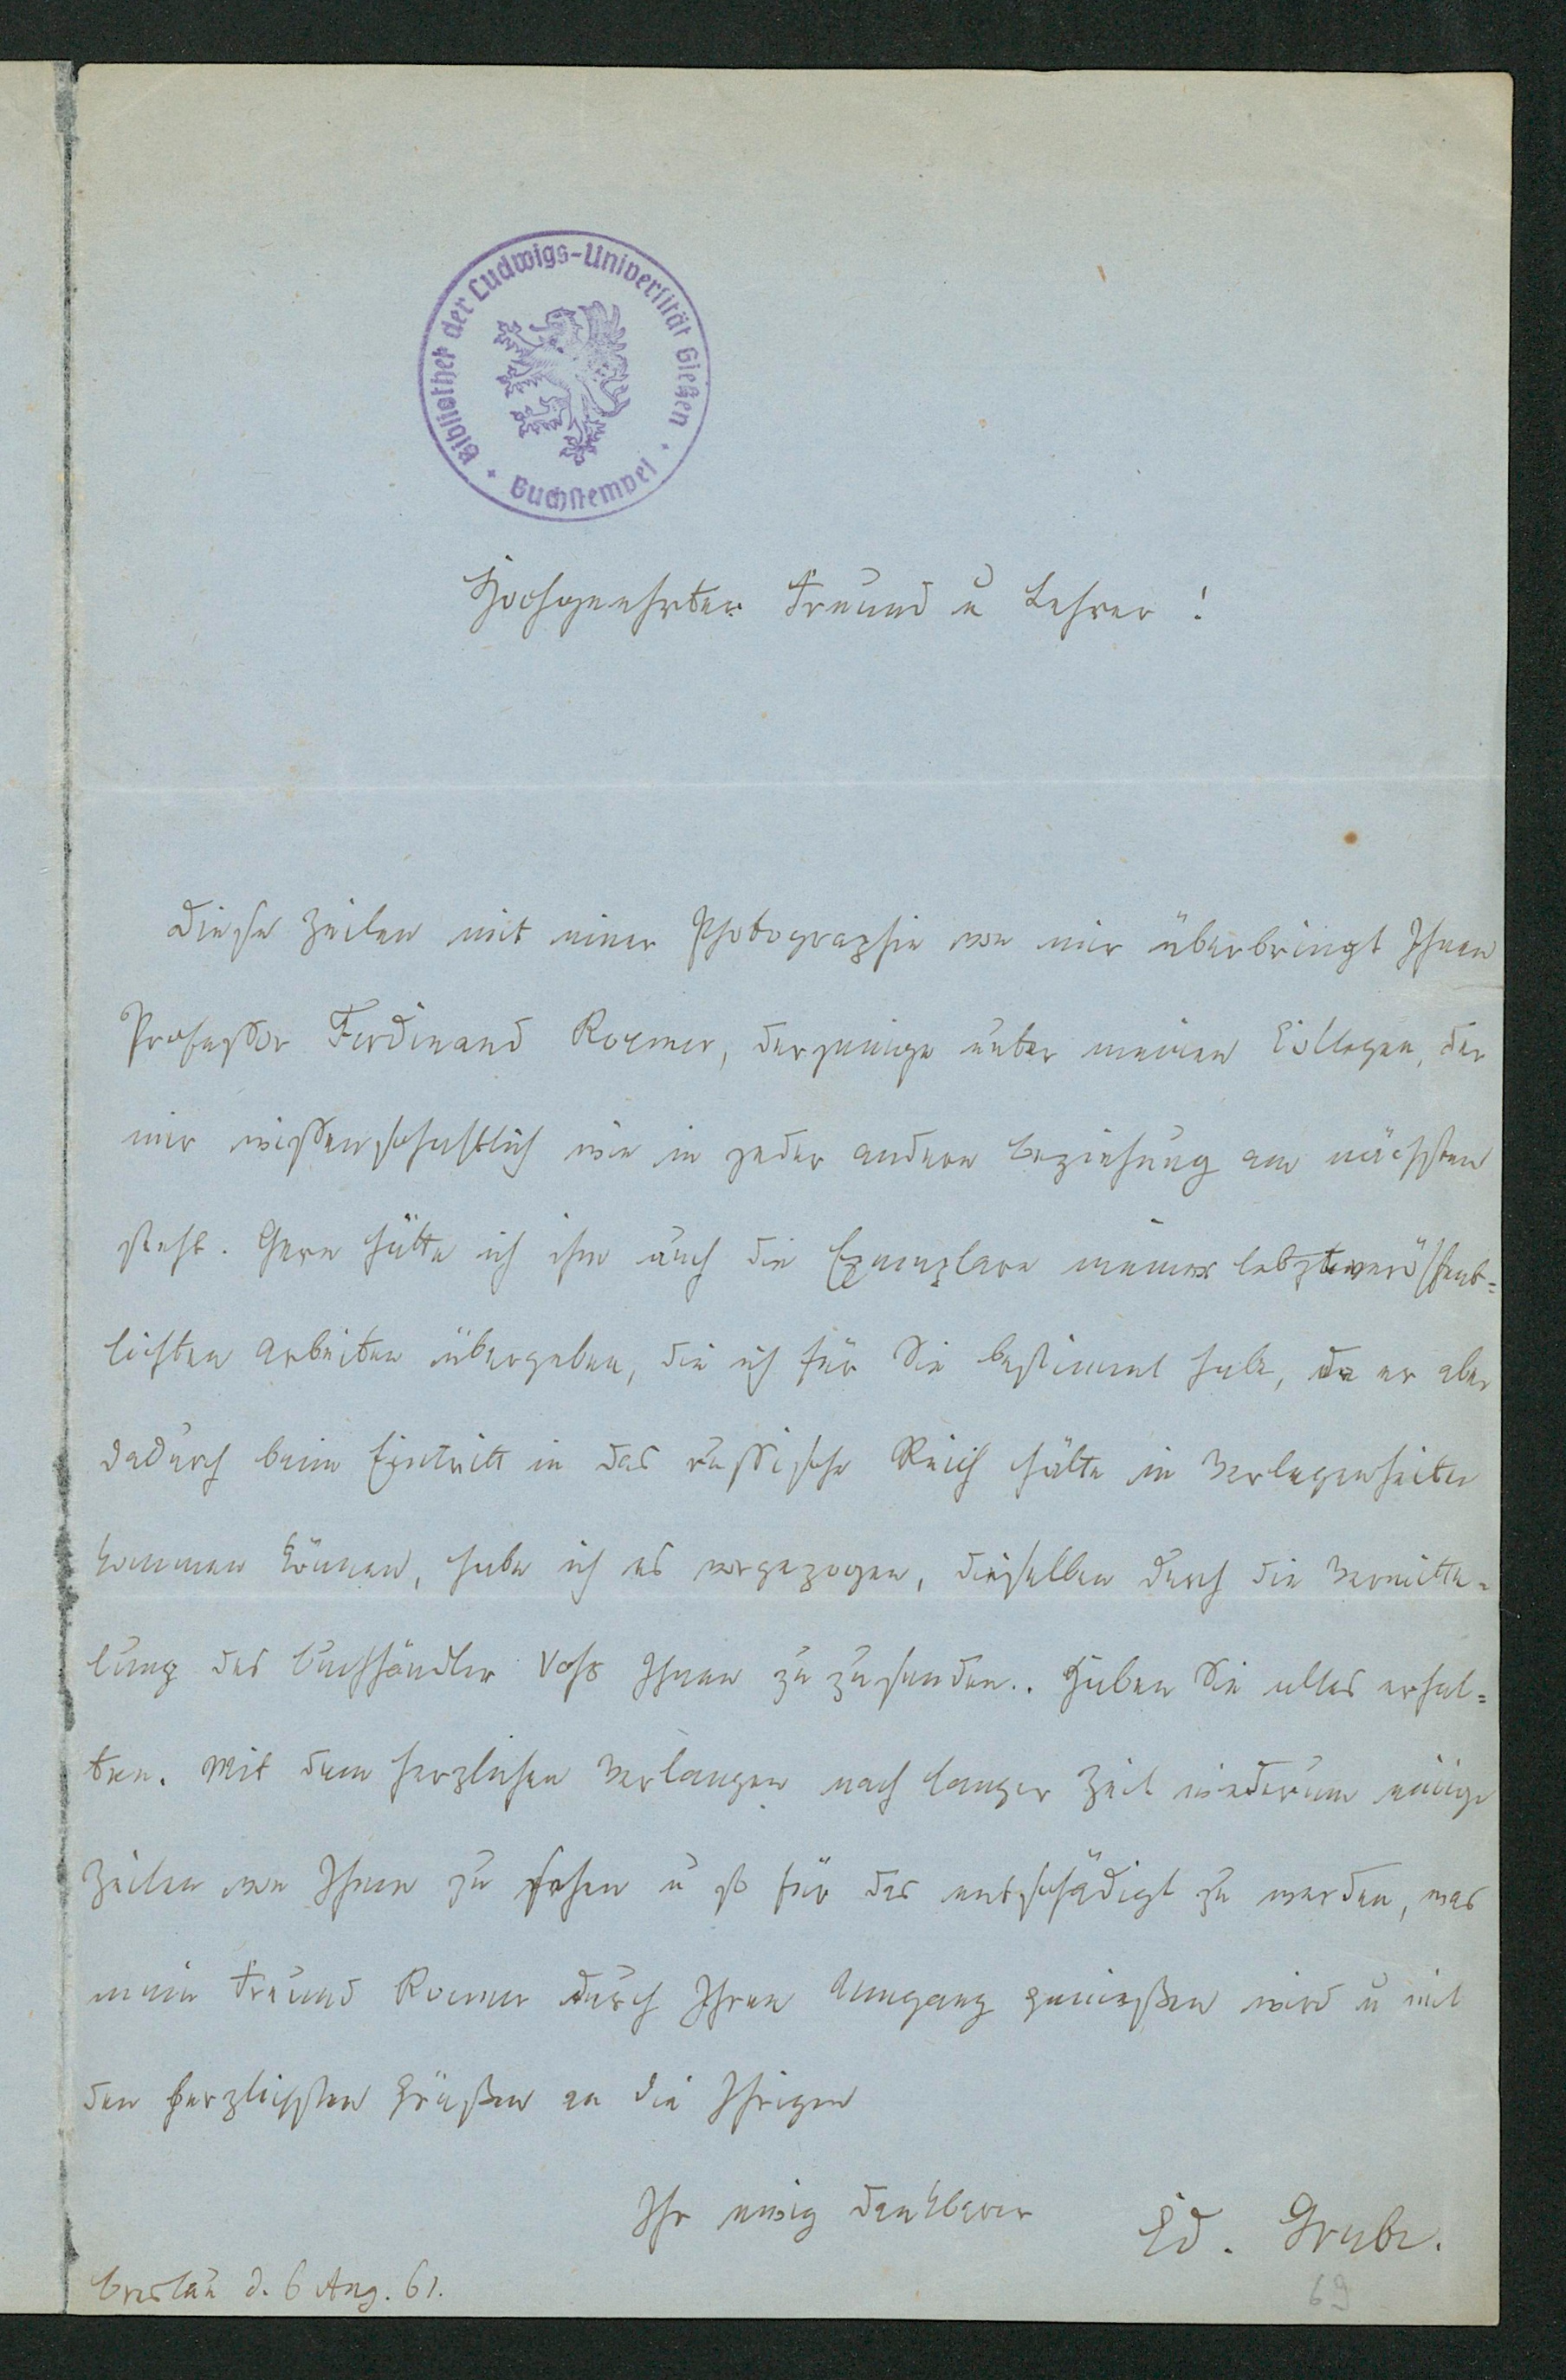 Bibliothek der Ludwigs-Universität Gießen
Buchstempel
Hochgeehrter Freund u Lehrer!
Diese Zeilen mit einer Photographie von mir überbringt Ihnen
Professor Ferdinand Roemer, derjenige unter meinen Collegen, der
mir wissenschaftlich wie in jeder andern Beziehung am nächsten
steht. Gern hätte ich ihm auch die Exemplare meiner letztveröffent=
lichten Arbeiten übergeben, die ich für Sie bestimmt habe, da er aber
dadurch beim Eintritt in das russische Reich hätte in Verlegenheiten
kommen können, habe ich es vorgezogen, dieselben durch die Vermitte=
lung des Buchhändler Voss Ihnen zu zusenden. Haben Sie alles erhal=
ten. Mit dem herzlichen Verlangen nach langer Zeit wiederum einige
Zeilen von Ihnen zu sehen u so für das entschädigt zu werden, was
mein Freund Roemer durch Ihren Umgang genießen wird u mit
den herzlichsten Grüßen an die Ihrigen
Ihr ewig dankbarer
Ed. Grube.
Breslau d. 6 Aug. 61.
69